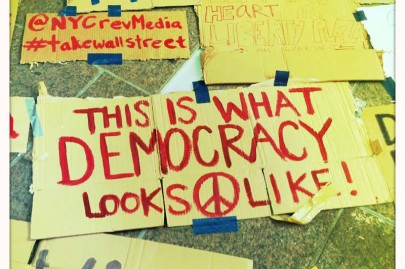 @NYCrevMedia
#takewallstreet
HEART
LIBERTY PLAZA
THIS IS WHAT
DEMOCRACY
LOOKS LIKE!